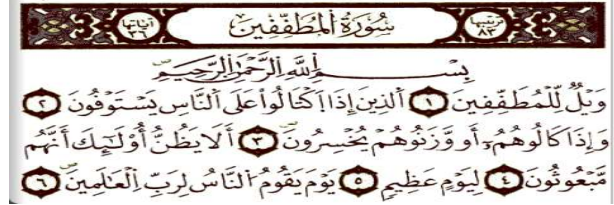 ترتيبها ٨٣ سُورَةُ المُطَفِّفِين آياتها ٣٦
بِسْمِ اللَّهِ الرَّحْمَٰنِ الرَّحِيمِ
وَيْلٌ لِّلْمُطَفِّفِينَ ١ الَّذِينَ إِذَا اكْتَالُوا عَلَى النَّاسِ يَسْتَوْفُونَ ٢
وَإِذَا كَالُوهُمْ أَو وَّزَنُوهُمْ يُخْسِرُونَ ٣ أَلَا يَظُنُّ أُوْلَٰئِكَ أَنَّهُم
مَّبْعُوثُونَ ٤ لِيَوْمٍ عَظِيمٍ ٥ يَوْمَ يَقُومُ النَّاسُ لِرَبِّ الْعَالَمِينَ ٦